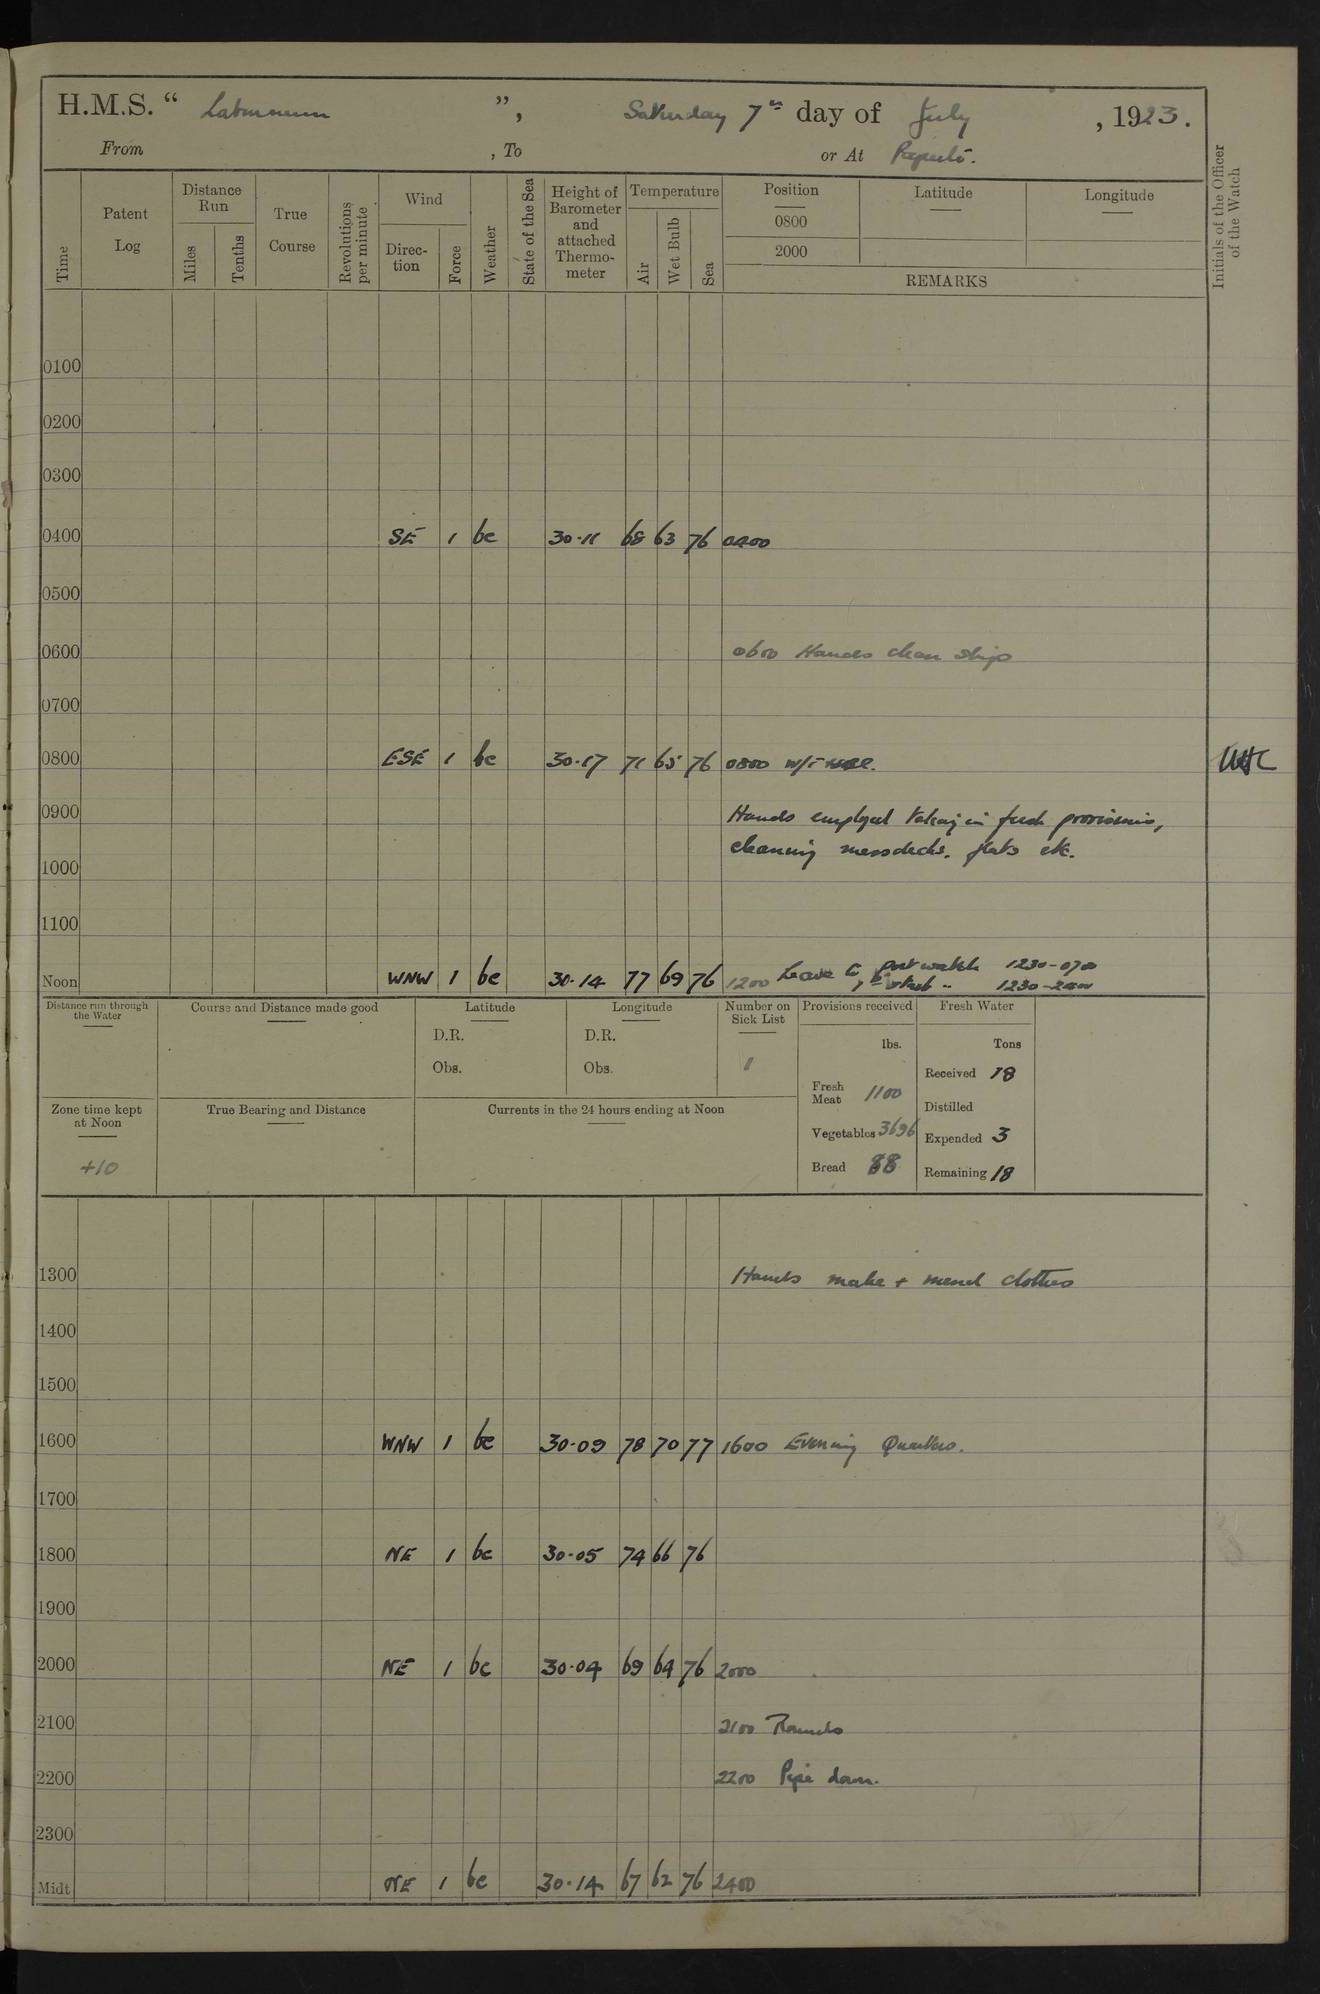 H.M.S. “ Laburnum ”, Saturday 7th day of July, 1923.
From , To or At Papeete.
Time
Patent Log
Distance Run
Miles
Tenths
True Course
Revolutions per minute
Wind
Direction
Force
Weather
State of the Sea
Height of Barometer and attached Thermometer
Temperature
Air
Wet Bulb
Sea
Position
0800
2000
Latitude
Longitude
REMARKS
Initials of the Officer of the Watch
0100
0200
0300
0400 SE 1 bc 30·11 68 63 76 0400
0500
0600 0600 Hands clean ship
0700
0800 ESE 1 bc 30·17 71 65 76 0800 W/T
0900 Hands employed taking in fresh provisions,
cleaning messdecks, flats etc.
1000
1100
Noon WNW 1 bc 30·14 77 69 76 1200 Leave to port watch 1230-0700
1230-2400
Distance run through the Water
Course and Distance made good
Latitude
D.R.
Obs.
Longitude
D.R.
Obs.
Number on Sick List
1
Provisions received
lbs.
Fresh Meat 1100
Vegetables 3696
Bread 88
Fresh Water
Tons
Received 18
Distilled
Expended 3
Remaining 18
Zone time kept at Noon
+10
True Bearing and Distance
Currents in the 24 hours ending at Noon
1300 Hands make + mend clothes
1400
1500
1600 WNW 1 bc 30·09 78 70 77 1600 Evening Quarters.
1700
1800 NE 1 bc 30·05 74 66 76
1900
2000 NE 1 bc 30·04 69 64 76 2000
2100 2100 Rounds
2200 2200 Pipe down.
2300
Midt NE 1 bc 30·14 67 62 76 2400